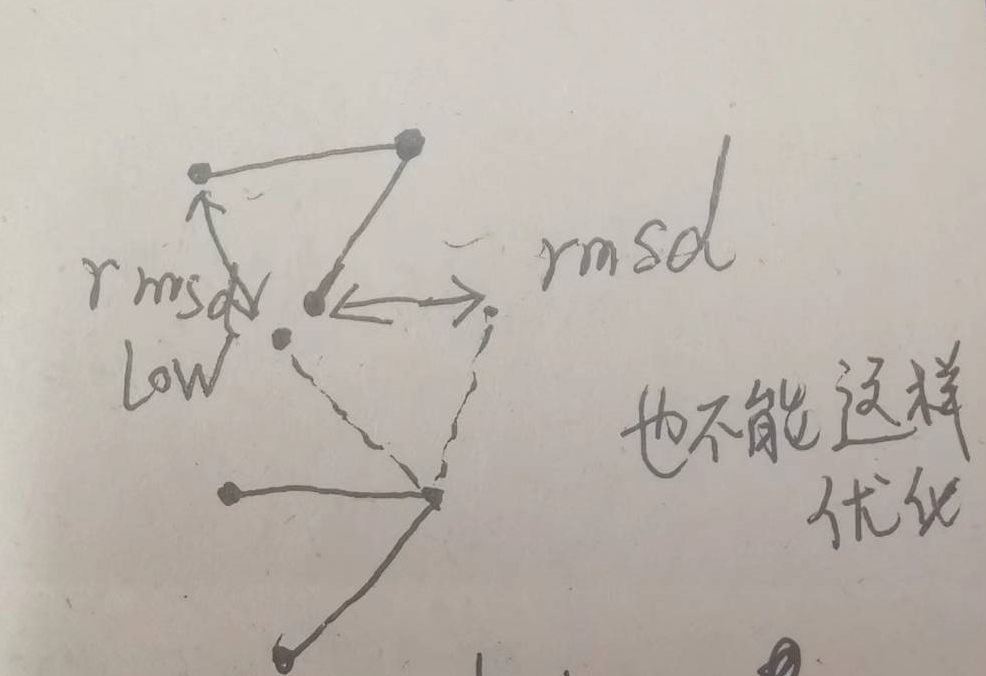 rmsd
rmsd
Low
也不能这样
优化